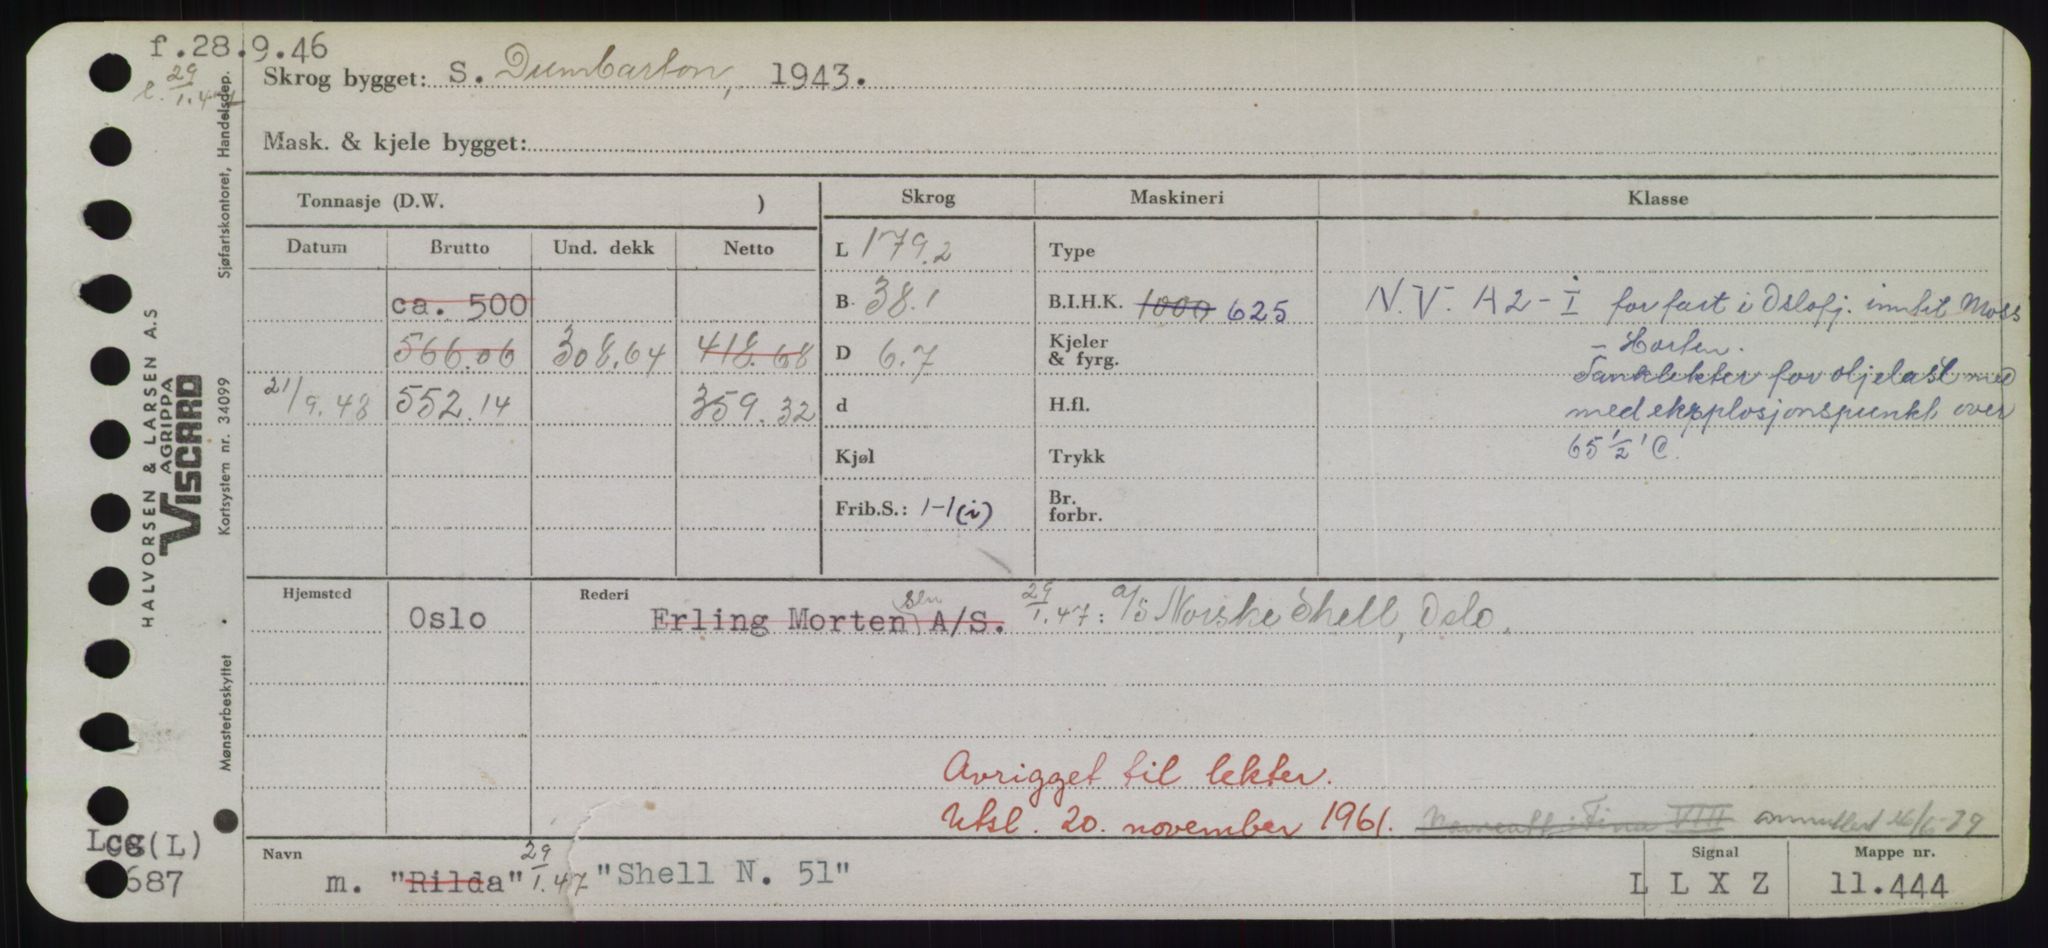 f.28.9.46
29/1.47
Skrog bygget: S. Dumbarton, 1943.
Mask. & kjele bygget:
Tonnasje (D.W. )
Skrog
Maskineri
Klasse
Datum Brutto Und. dekk Netto
L 179.2
Type
ca. 500
B. 38.1
B.I.H.K. 1000 625
N.V. A2 - I i for fart i Oslofj. inntil Moss
566.06 308.64 418.68
D 6.7
Kjeler & fyrg.
- Horten.
Tanklekter for oljelast med
21/9.48 552.14 359.32
d
H.fl.
med eksplosjonspunkt over
65 1/2° C.
Kjøl
Trykk
Frib.S.: 1-1(i)
Br. forbr.
Hjemsted
Rederi
Oslo
Erling Mortensen A/S. 29/1.47: a/s Norske Shell, Oslo.
Avrigget til lekter.
Utsl. 20. november 1961.
Fina VIII annullert
Navn
m. "Rilda" 29/1.47 "Shell N. 51"
Signal
L L X Z
Mappe nr.
11.444
Lcg(L)
687
HALVORSEN & LARSEN A.S
AGRIPPA
VISCARD
Mønsterbeskyttet • Kortsystem nr. 34099 Sjøfartskontoret, Handelsdep.